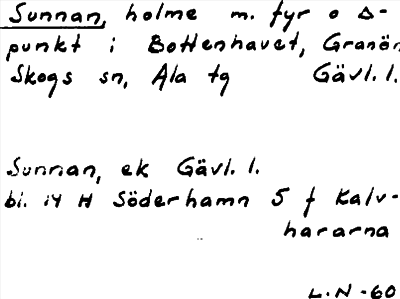 Sunnan, holme m. fyr o Δ-
punkt i Bottenhavet, Granön
Skogs sn, Ala tg Gävl. l.
Sunnan, ek Gävl. l.
bl. 14 H Söderhamn 5 f Kalv-
hararna
L.N-60